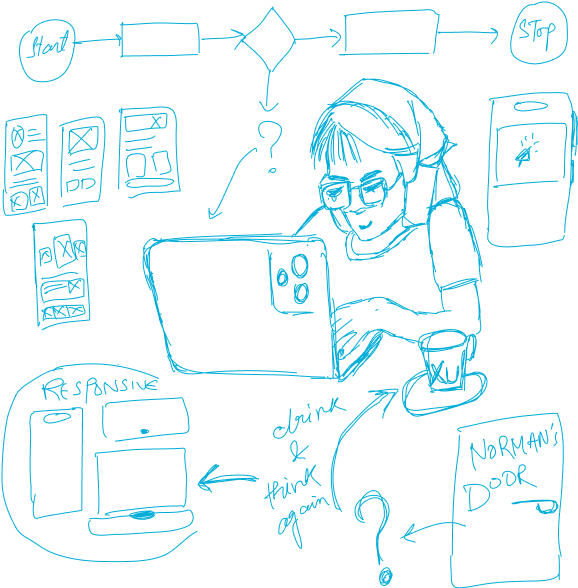 Start
STOP
?
RESPONSIVE
drink
&
think
again
XU
NORMAN'S
DOOR
?